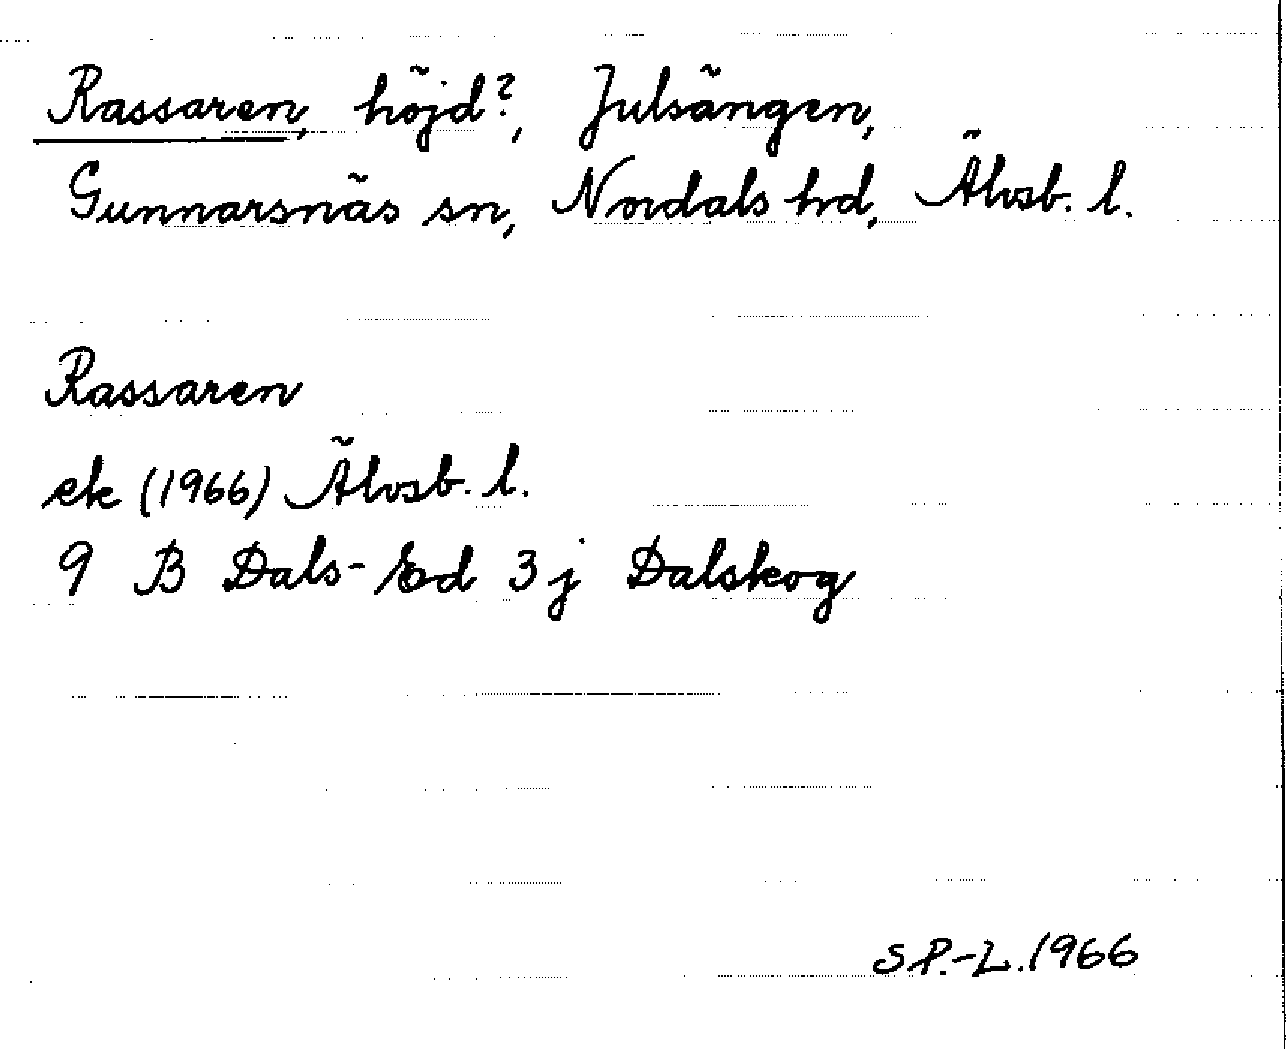 Rassaren, höjd?, Julsängen,
Gunnarsnäs sn, Nordals hd, Älvsb. l.
Rassaren
ek (1966) Älvsb. l.
9 B Dals-Ed 3 j Dalskog
S P.-L. 1966